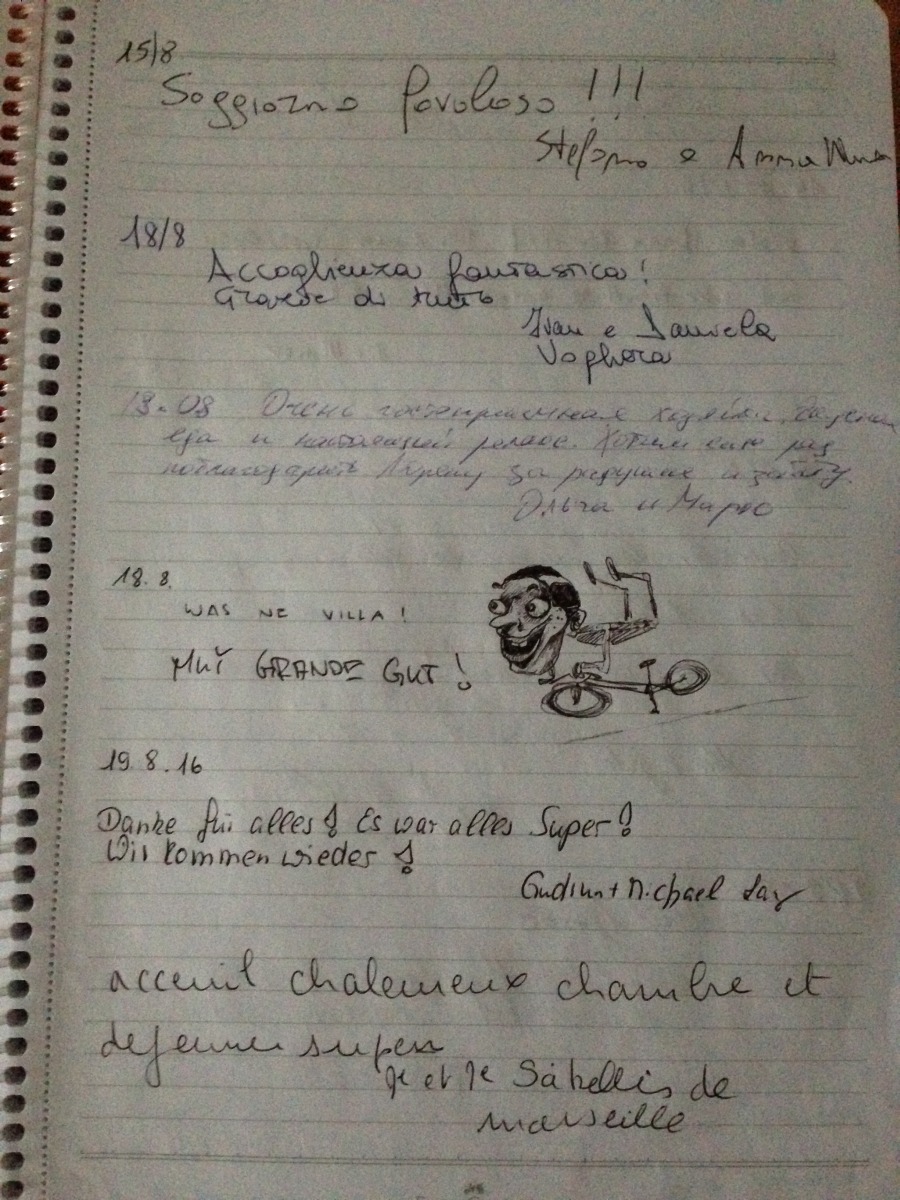 15/8
Soggiorno favoloso !!!
Stefano e Anna
18/8
Accoglienza fantastica!
Grazie di tutto
Ivan e Daniela
Voghera
Очень гостеприимная хозяйка,
еда и настоящий релакс. Хотим ещё раз
поблагодарить за радушие и заботу.
Ольга и Марио
18.8.
WAS NE VILLA!
GRANDE GUT!
19.8.16
Danke für alles! Es war alles Super!
Wir kommen wieder!
Gudrun + Michael
acceuil chaleureux chambre et
dejeuner super
et Sabellis de
marseille